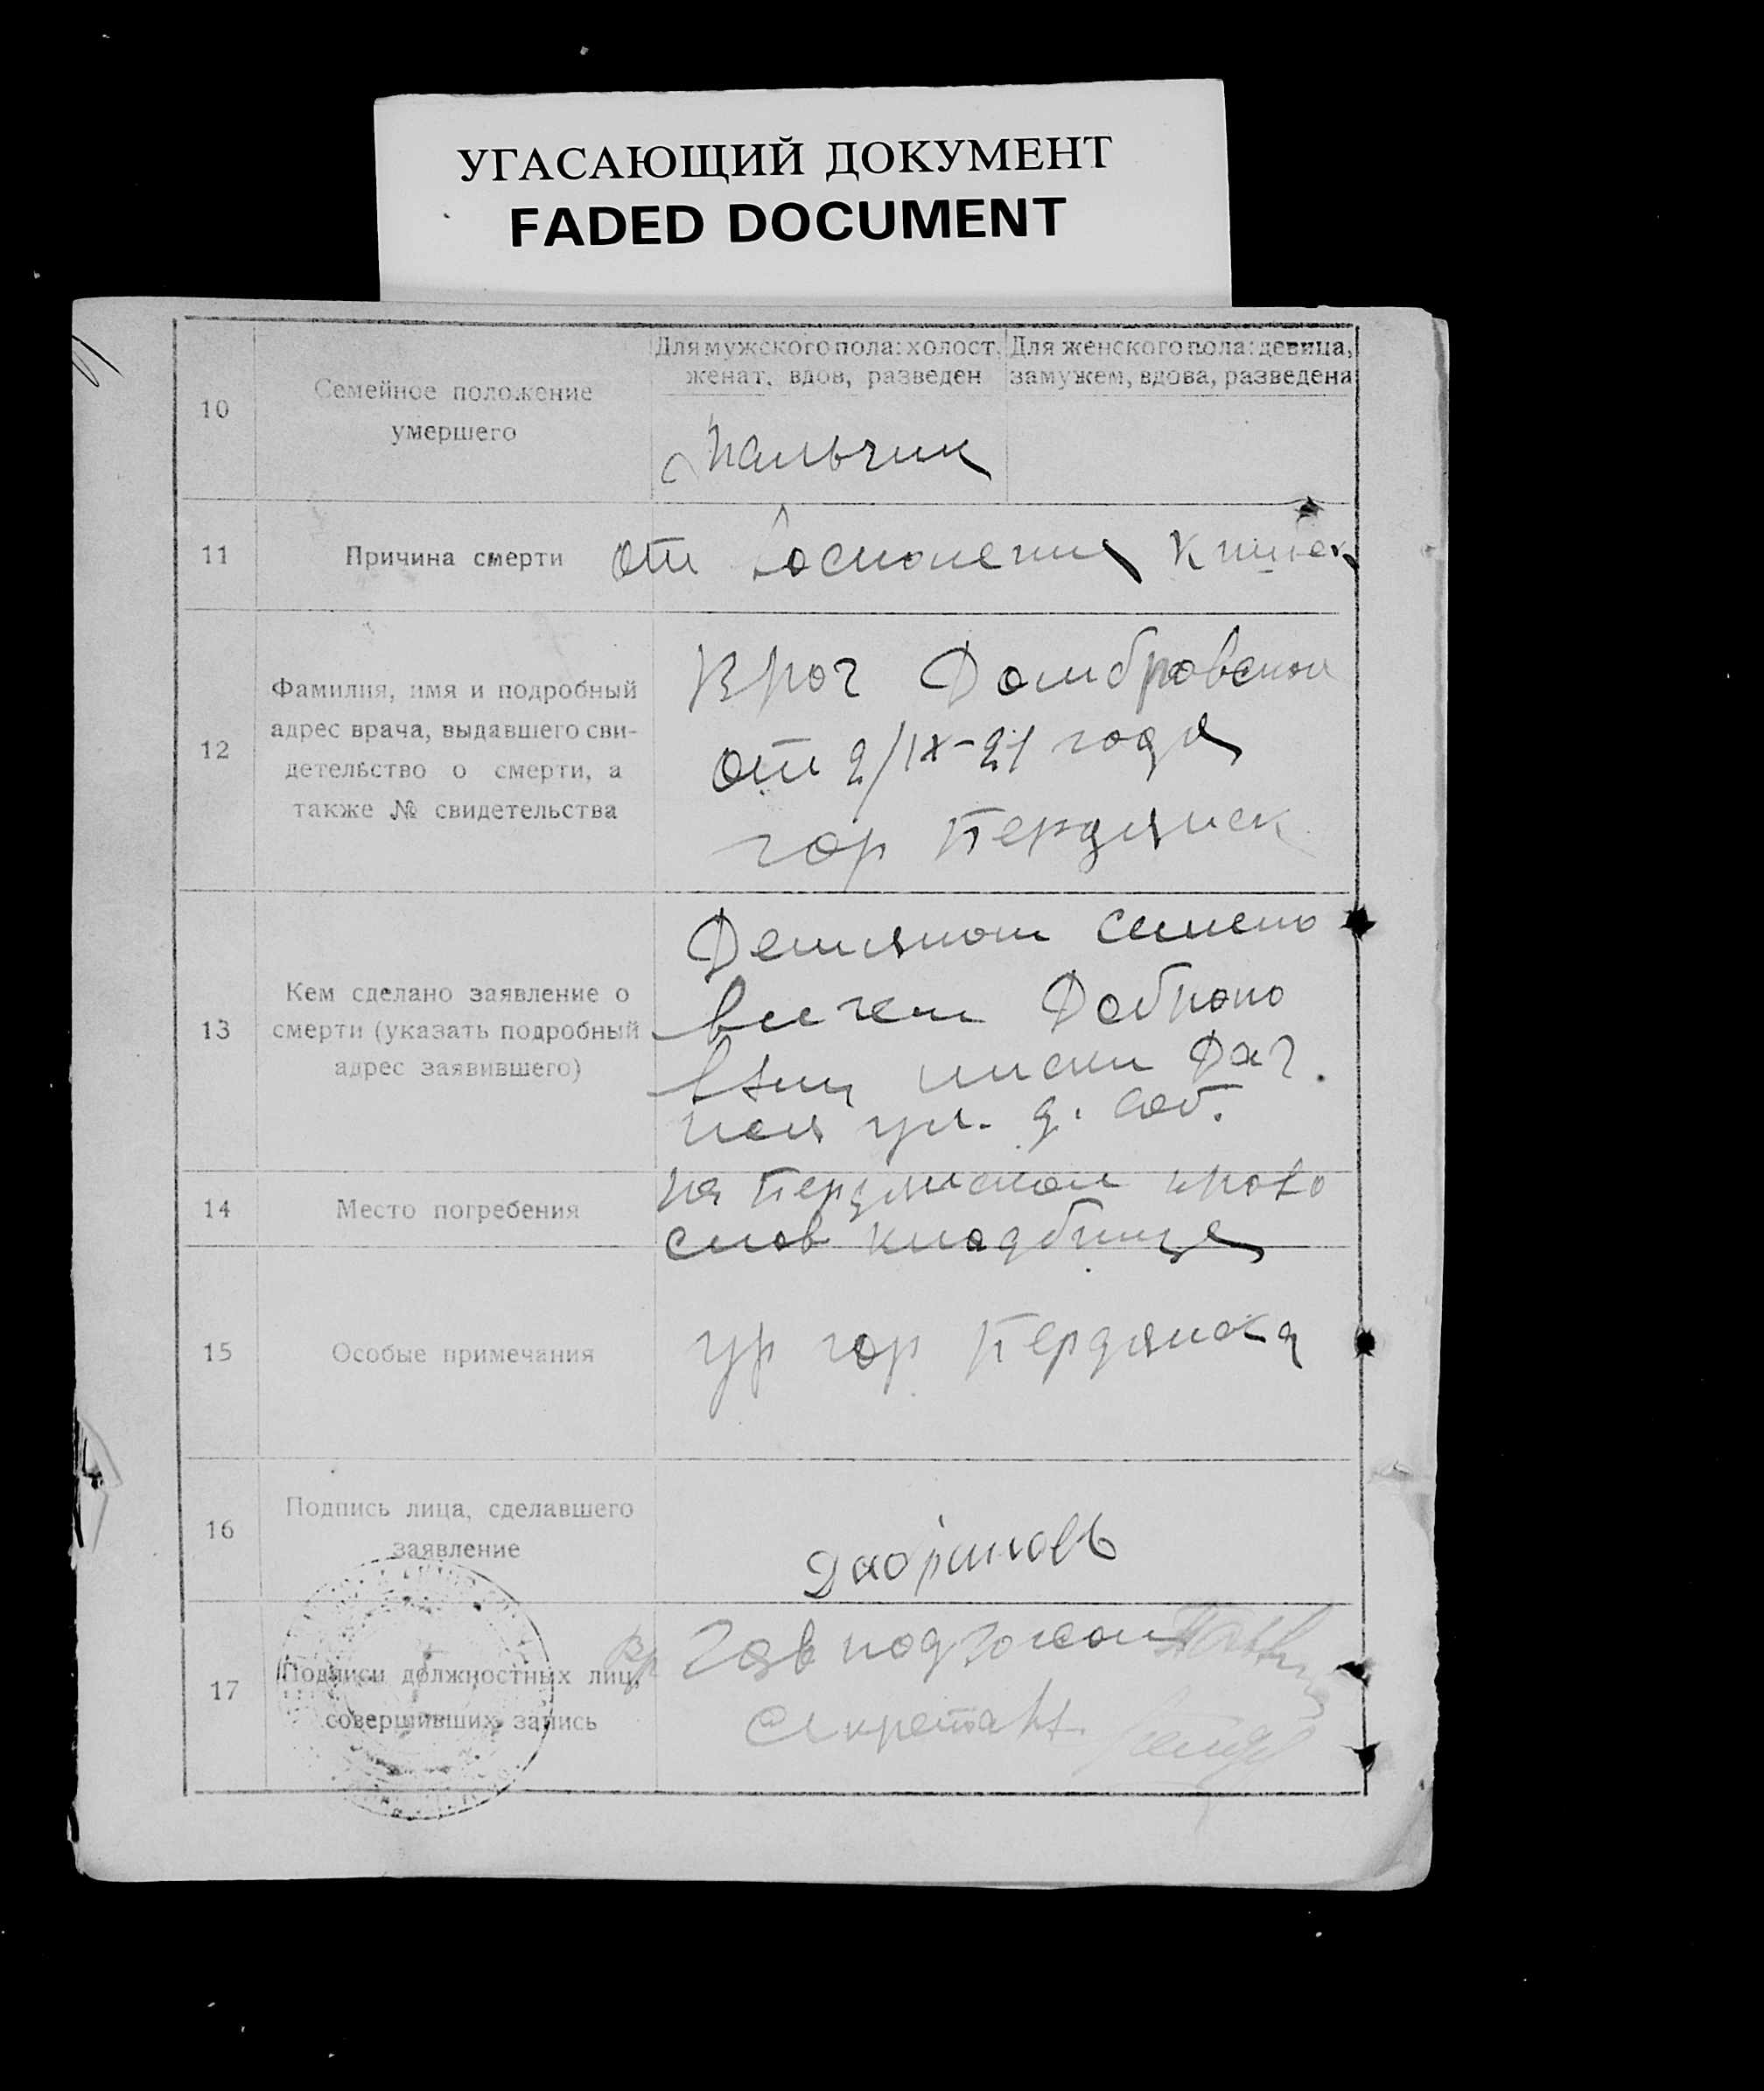 УГАСАЮЩИЙ ДОКУМЕНТ
FADED DOCUMENT
10
Семейное положение
умершего
Для мужского пола: холост,
женат, вдов, разведен
Для женского пола: девица,
замужем, вдова, разведена
Мальчик
11
Причина смерти
от восполения кишек
12
Фамилия, имя и подробный
адрес врача, выдавшего сви-
детельство о смерти, а
также № свидетельства
Врач Домбровской
от 2/IX-21 года
гор Бердянск
13
Кем сделано заявление о
смерти (указать подробный
адрес заявившего)
Демяном Семено
вичем
Дач
ная ул. д. соб.
14
Место погребения
на Бердянском право
слов кладбище
15
Особые примечания
гр гор Бердянска
16
Подпись лица, сделавшего
заявление
17
Подписи должностных лиц,
совершивших запись
Вр Зав подотделом
Секретарь